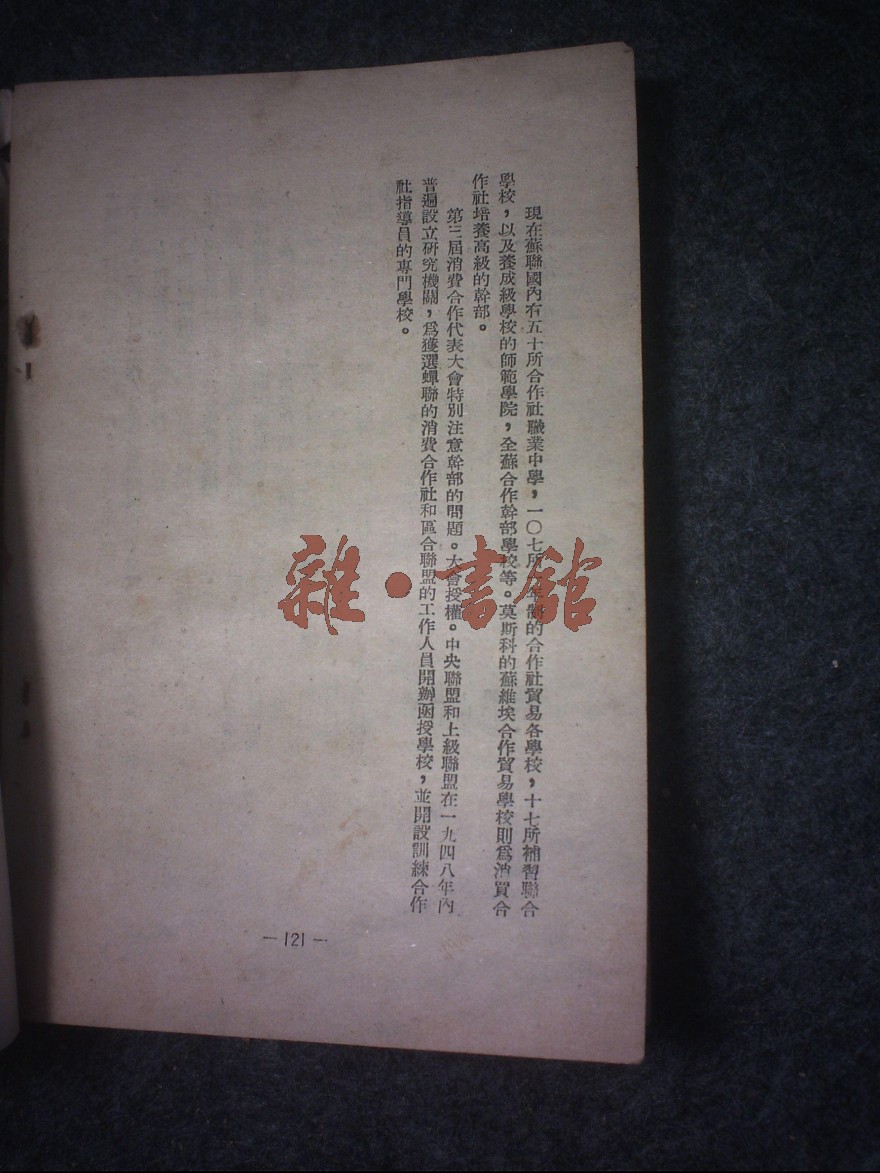 現在蘇聯國內有五十所合作社職業中學，一〇七所年制的合作社貿易各學校，十七所補習聯合
學校，以及養成級學校的師範學院，全蘇合作幹部學校等。莫斯科的蘇維埃合作貿易學校則爲消買合
作社培養高級的幹部。
第三屆消費合作代表大會特別注意幹部的問題。大會授權。中央聯盟和上級聯盟在一九四八年內
普遍設立研究機關，爲獲選蟬聯的消費合作社和區合聯盟的工作人員開辦函授學校，並開設訓練合作
社指導員的專門學校。
— 121 —
雜·書館